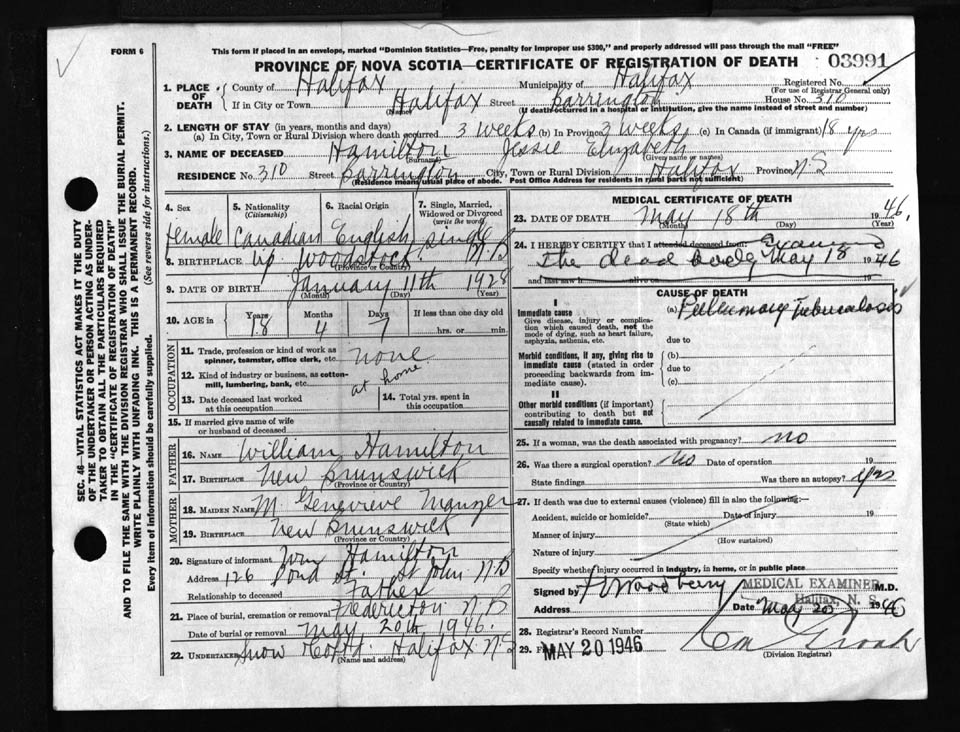 FORM 6
This form if placed in an envelope, marked "Dominion Statistics—Free, penalty for improper use $300," and properly addressed will pass through the mail "FREE"
PROVINCE OF NOVA SCOTIA—CERTIFICATE OF REGISTRATION OF DEATH 03991
1. PLACE OF DEATH County of Halifax Municipality of Halifax Registered No.
(For use of Registrar General only)
If in City or Town Halifax Street Barrington House No. 310
(Name) (If death occurred in a hospital or institution, give the name instead of street and number)
2. LENGTH OF STAY (in years, months and days)
(a) In City, Town or Rural Division where death occurred 3 weeks (b) In Province 3 weeks (c) In Canada (if immigrant) 18 yrs
3. NAME OF DECEASED Hamilton Jessie Elizabeth
(Surname) (Given name or names)
RESIDENCE No. 310 Street Barrington City, Town or Rural Division Halifax Province N S
(Residence means usual place of abode. Post Office Address for residents in rural parts not sufficient)
SEC. 46—VITAL STATISTICS ACT MAKES IT THE DUTY
OF THE UNDERTAKER OR PERSON ACTING AS UNDER-
TAKER TO OBTAIN ALL THE PARTICULARS REQUIRED
IN THE "CERTIFICATE OF REGISTRATION OF DEATH"
AND TO FILE THE SAME WITH THE DIVISION REGISTRAR WHO SHALL ISSUE THE BURIAL PERMIT.
WRITE PLAINLY WITH UNFADING INK. THIS IS A PERMANENT RECORD.
Every item of information should be carefully supplied. (See reverse side for instructions.)
4. Sex 5. Nationality (Citizenship) 6. Racial Origin 7. Single, Married, Widowed or Divorced (write the word)
female Canadian English single
8. BIRTHPLACE Woodstock N.B
(Province or Country)
9. DATE OF BIRTH January 11th 1928
(Month) (Day) (Year)
10. AGE in Years Months Days If less than one day
18 4 7 hrs. or min.
OCCUPATION
11. Trade, profession or kind of work as spinner, teamster, office clerk, etc. none
12. Kind of industry or business, as cotton-mill, lumbering, bank, etc. at home
13. Date deceased last worked at this occupation 14. Total yrs. spent in this occupation
15. If married give name of wife or husband of deceased
FATHER
16. NAME William Hamilton
17. BIRTHPLACE New Brunswick
(Province or Country)
MOTHER
18. MAIDEN NAME M. Genevieve Manzer
19. BIRTHPLACE New Brunswick
(Province or Country)
20. Signature of informant Wm Hamilton
Address 126 Pond St. St John N.B
Relationship to deceased Father
21. Place of burial, cremation or removal Fredericton N.B
Date of burial or removal May 20th 1946.
22. UNDERTAKER Snow & Co Ltd. Halifax N.S
(Name and address)
MEDICAL CERTIFICATE OF DEATH
23. DATE OF DEATH May 18th 1946.
(Month) (Day) (Year)
24. I HEREBY CERTIFY that I attended deceased from: Examined
the dead body May 18 1946
and last saw h alive on
CAUSE OF DEATH
I
Immediate cause (a) Pullmonary Tuberculosis
Give disease, injury or complication which caused death, not the mode of dying, such as heart failure, asphyxia, asthenia, etc.
due to
Morbid conditions, if any, giving rise to immediate cause (stated in order proceeding backwards from immediate cause). (b)
due to
(c)
II
Other morbid conditions (if important) contributing to death but not causally related to immediate cause.
25. If a woman, was the death associated with pregnancy? no
26. Was there a surgical operation? No Date of operation 19
State findings Was there an autopsy? yes
27. If death was due to external causes (violence) fill in also the following:—
Accident, suicide or homicide? Date of injury 19
(State which)
Manner of injury
(How sustained)
Nature of injury
Specify whether injury occurred in industry, in home, or in public place
Signed by Woodberry MEDICAL EXAMINER M.D.
Halifax, N. S.
Address Date May 20 1946
28. Registrar's Record Number
29. MAY 20 1946
(Division Registrar)